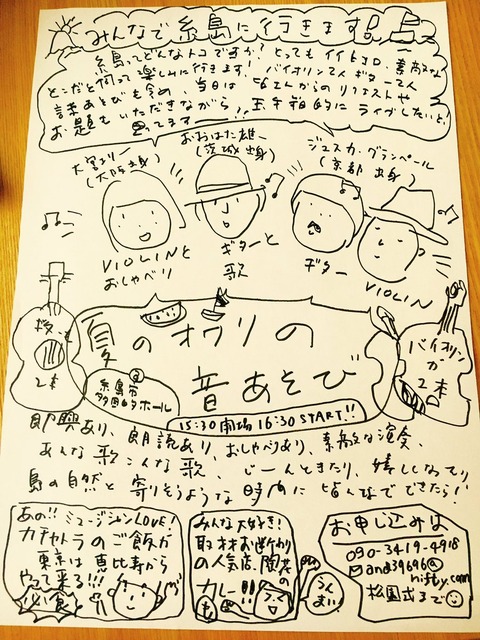 みんなで糸島に行きます
糸島ってどんなトコですか?とってもイイトコロ、素敵な
とこだと伺って楽しみに行きます!バイオリン二人ギター二人
詩あそびも含め、当日は皆さんからのリクエストや
お題もいただきながら 即興的にライブしたいと
思ってます!!
大宮エリー
(大阪出身)
おおはた雄一
(茨城出身)
ジェスカ・グランペール
(京都出身)
VIOLINと
おしゃべり
ギターと
歌
ギター
VIOLIN
ギター
2本
夏のオワリの
音あそび
@
糸島市
ホール
15:30開場 16:30 START!!
バイオリン
が
2本
即興あり、朗読あり、おしゃべりあり、素敵な演奏、
あんな歌こんな歌、じーんときたり、嬉しくなったり、
島の自然と寄りそうような時間に皆んなでできたら!!
あの!!ミュージシャンLOVE!
カチャトラのご飯が
東京は恵比寿から
やって来る!!!
必食
みんな大好き!
取材お断わり
の人気店、陶花の
カレー!!!
も
うんまい
お申し込みは
090-3419-4918
✉and39696@
nifty.com
松園さまで